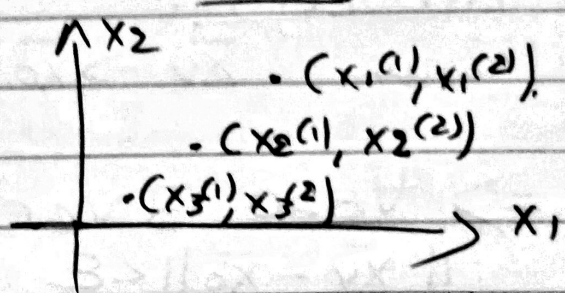 x2
(x1(1), x1(2)).
(x2(1), x2(2))
(x3(1), x3(2)
x1